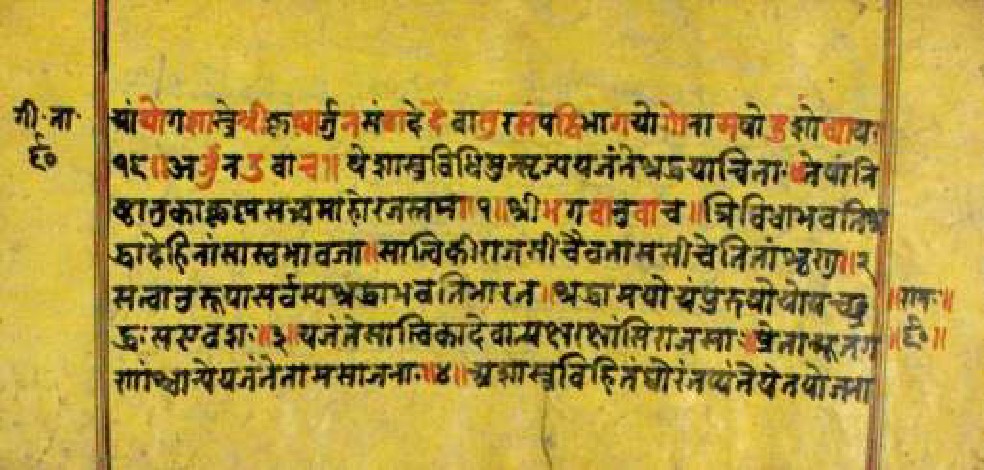 गी॰ ता॰
६०
यां योगशास्त्रे श्रीकृष्णार्जुनसंवादे दैवासुरसंपद्विभागयोगो नाम षोडशोध्यायः
१६॥ अर्जुन उवाच॥ ये शास्त्रविधिमुत्सृज्य यजंते श्रद्धयाचिताः॥ तेषां नि
ष्ठा तु का कृष्ण सत्त्वमाहो रजस्तमः॥१॥ श्रीभगवानुवाच॥ त्रिविधा भवति श्र
द्धा देहिनां सा स्वभावजा॥ सात्विकी राजसी चैव तामसी चेति तां शृणु॥२
सत्वानुरूपा सर्वस्य श्रद्धा भवति भारत॥ श्रद्धामयो यं पुरुषो यो यच्छ्र
द्धः स एव शः॥३॥ यजंते सात्विका देवान्यक्षरक्षांसि राजसाः॥ प्रेतान्भूतग
णांश्चान्ये यजंते तामसा जनाः॥४॥ अशास्त्रविहितं घोरं तप्यंते ये तपो जना
॥राम॰॥
६०